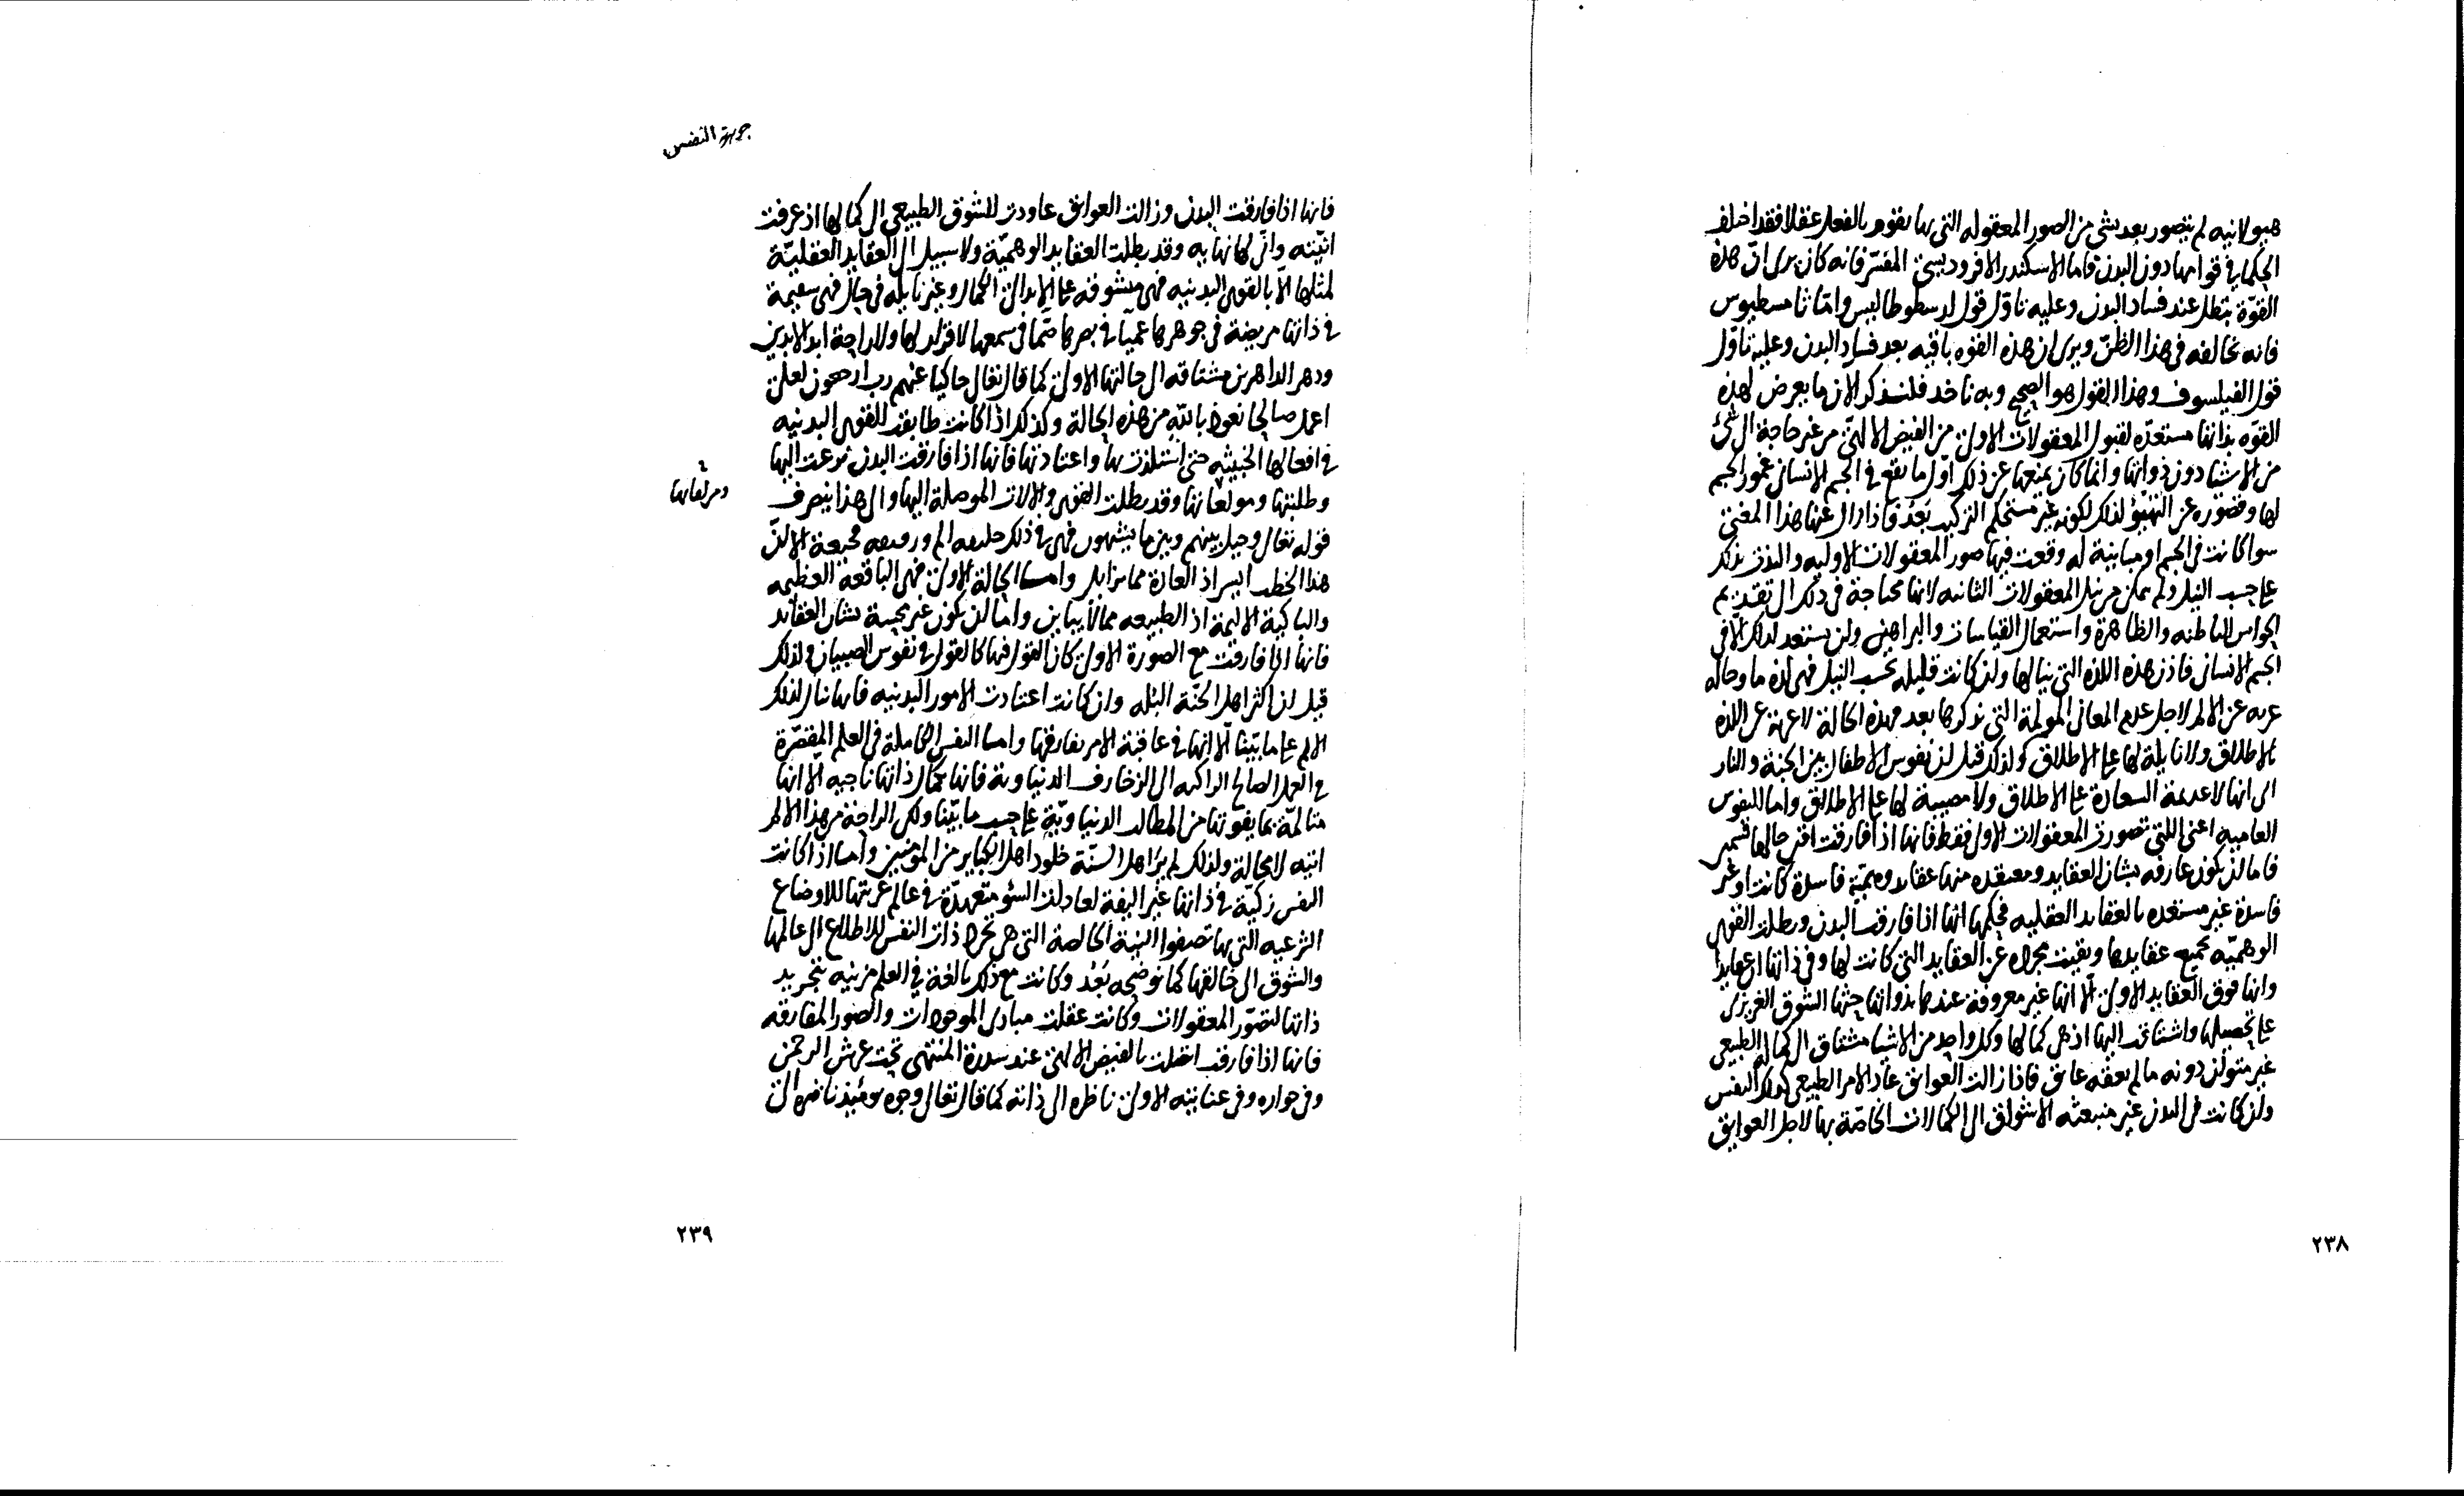 هيولانيه لم يتصور بعد بشي من الصور المعقوله التي بها يقوم بالفعل عقلا فقد اختلف
الحكما في قوامها دون البدن فاما الاسكندر الافروديسي المفسر فانه كان يرى ان هذه
القوّة تبطل عند فساد البدن وعليه تاوّل قول ارسطوطاليس وامّا ثامسطيوس
فانه يخالفه في هذا الظنّ ويرى ان هذه القوه باقيه بعد فساد البدن وعليه تاوّل
قول الفيلسوف وهذا القول هو الصحيح وبه ناخذ فلنذكر الان ما يعرض لهذه
القوه بذاتها مستعدّه لقبول المعقولات الاولى من الفيض الالهيّ من غير حاجة الى شئ
من الاشيا دون ذواتها وانما كان يمنعها عن ذلك اوّل ما تقع في الجسم الانساني غمور الجسم
لها وقصوره عن التهيّؤ لذلك لكونه غير مستحكم التركيب بعد فاذا زال عنها هذا المعنى
سوا كانت في الجسم او مباينة له وقعت فيها صور المعقولات الاوليه والتذت بذلك
على حسب النيل ولم يمكن من نيل المعقولات الثانيه لانها محتاجة في ذلك الى تقديم
الحواس الباطنه والظاهرة واستعمال القياسات والبراهين ولن يستعد لذلك الا في
الجسم الانساني فاذن هذه اللذه التي نيالها ولن كانت قليله بحسب النيل فهي لذه ما وحاله
عريه عن الالم لاجل عدم المعاني المولمة التي نذكرها بعد فهذه الحالة لا عرية عن اللذه
بالاطلاق ولا نايلة لها على الاطلاق ولذلك قيل لن نفوس الاطفال بين الجنة والنار
اي انها لا عديمة السعادة على الاطلاق ولا مصيبة لها على الاطلاق واما النفوس
العاميه اعني اللتي تصورت المعقولات الاول فقط فانها اذا فارقت افترق حالها قسمين
فاما لن يكون عارفه بشان العقايد ومعتقده منها عقايد وهميّة فاسدة كانت او غير
فاسدة غير مستعده بالعقايد العقليه فحكمها انها اذا فارقت البدن وبطلت القوى
الوهميّه بجميع عقايدها وبقيت مجرده عن العقايد التي كانت لها وفي ذاتها ان عقايدا
وانها فوق العقايد الاولى الا انها غير معروفة عندها بذواتها حثها الشوق الغريزي
على تحصيلها واشتاقت اليها اذ هي كمالها وكل واحد من الاشيا مشتاق الى كماله الطبيعي
غير متوان دونه ما لم يعقه عايق فاذا زالت العوايق عاد الامر الطبيعي كذلك النفس
ولن كانت في البدن غير منبعثه الاشواق الى الكمالات الخاصّة بها لاجل العوايق
٢٣٨
جهة النفس
فانها اذا فارقت البدن وزالت العوايق عاودت للشوق الطبيعي الى كمالها اذ عرفت
انّيته وانّى لها نها به وقد بطلت العقايد الوهميّة ولا سبيل الى العقايد العقليّة
لمثلها الّا بالقوى البدنيه فهي متشوقه على الابد الى الكمال وغير نايله في حال فهي سقيمة
في ذاتها مريضة في جوهرها عميّا في بصرها صمّا في سمعها لا قرار لها ولا راحة ابد الابدين
ودهر الداهرين مشتاقه الى حالتها الاولى كما قال تعالى حاكيا عنهم رب ارجعون لعلي
اعمل صالحا نعوذ بالله من هذه الحالة وكذلك اذا كانت طابقت القوى البدنيه
في افعالها الخبيثه حتى استلذت بها واعتادتها فانها اذا فارقت البدن نزعت اليها
وطلبتها ومولعاتها وقد بطلت القوى والالات الموصلة اليها والى هذا ينصرف
ومرلفاتها
قوله تعالى وحيل بينهم وبين ما يشتهون فهي في ذلك حليفه الم ورضيعه فجيعة الا لنّ
هذا الخطب ايسر اذ العادة مما يزايل وامـا الحالة الاولى فهي الباقعة العظيمه
والداهية الاليمة اذ الطبيعه مما لا يباين واما لن يكون غير محسة بشان العقائد
فانها اذا فارقت مع الصورة الاولى كان القول فيها كالقول في نفوس الصبيان ولذلك
قيل لن اكثر اهل الجنّة البُله وان كانت اعتادت الامور البدنيه فانها تنال لذلك
الالم على ما بيّنّا الّا انها في عاقبة الامر تفارقها وامـا النفس الكاملة في العلم المقصّرة
في العمل الصالح الراكنه الى الزخارف الدنياوية فانها بكمال ذاتها ناجيه الّا انها
متالمّة بما يفوتها من المطالب الدنياويّة على حسب ما بيّنا ولكن الراحة من هذا الالم
اتيه لا محالة ولذلك لم يرَ اهل السّنّة خلود اهل الكباير من المؤمنين وامـا اذا كانت
النفس زكيّة في ذاتها غير اليفة لعادات السّو متعهدّة في عالم غربتها للاوضاع
الشرعيه التي بها تصفوا النيّة الخالصة التي هي تحرك ذات النفس للاطلاع الى عالمها
والشوق الى خالقها كما نوضحه بَعْد وكانت مع ذلك بالغة في العلم مزينه بتجريد
ذاتها لتصوّر المعقولات وكانت عقلت مبادى الموجودات والصور المفارقه
فانها اذا فارقت اتصلت بالفيض الالهيّ عند سدرة المنتهى تحت عرش الرحمن
وفي جواره وفي عنايته الاولى ناظره الى ذاته كما قال تعالى وجوه يومئيذ ناضره الى
٢٣٩